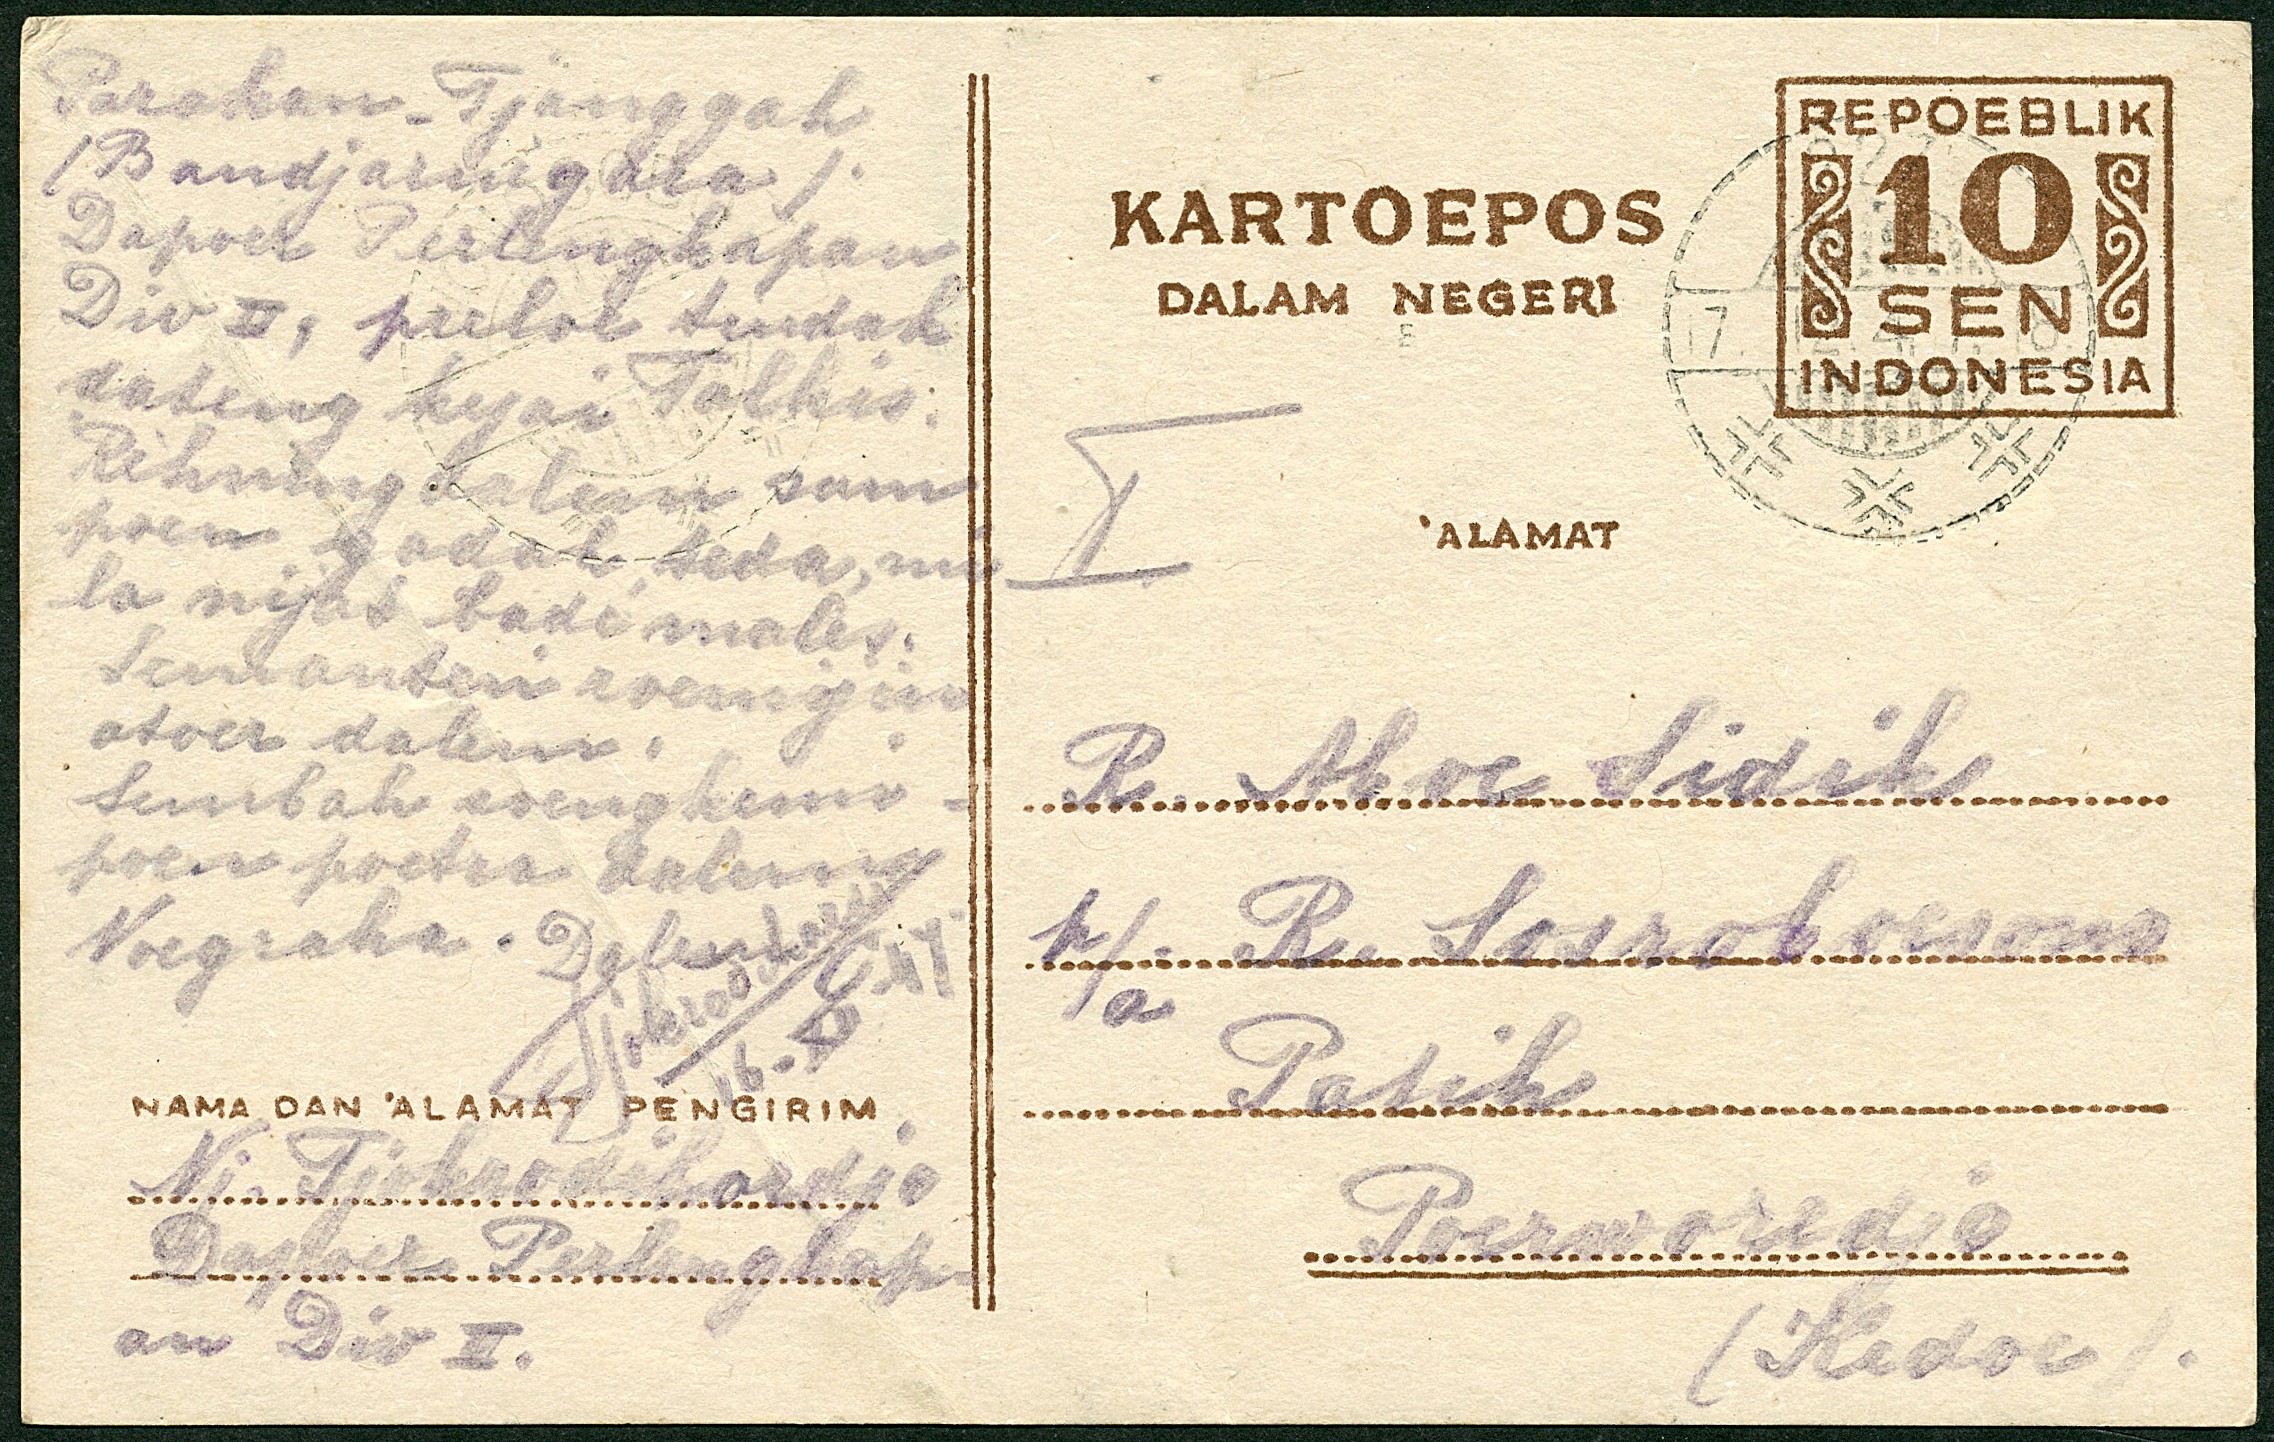 Parakan-Tjanggah
(Bandjarnigara).
Dapoer Perlengkapan
Div II, perloe tindak
dateng kjai Tolhis.
Rehning dalem sam
poen gadah seda, mi
la nijat badé males.
Semanten roemijin
atoer dalem.
Sembah soengkemi-
poen poetra dalem
Noegraha.
16-XI-47
NAMA DAN 'ALAMAT PENGIRIM
Nj. Tjokrodihardjo
Dapoer Perlengkap-
an Div II.
KARTOEPOS
DALAM NEGERI
REPOEBLIK
10
SEN
INDONESIA
'ALAMAT
R. Aboe Sidik
p/a R. Sosrokoesomo
Patih
Poerworedjo
(Kedoe).